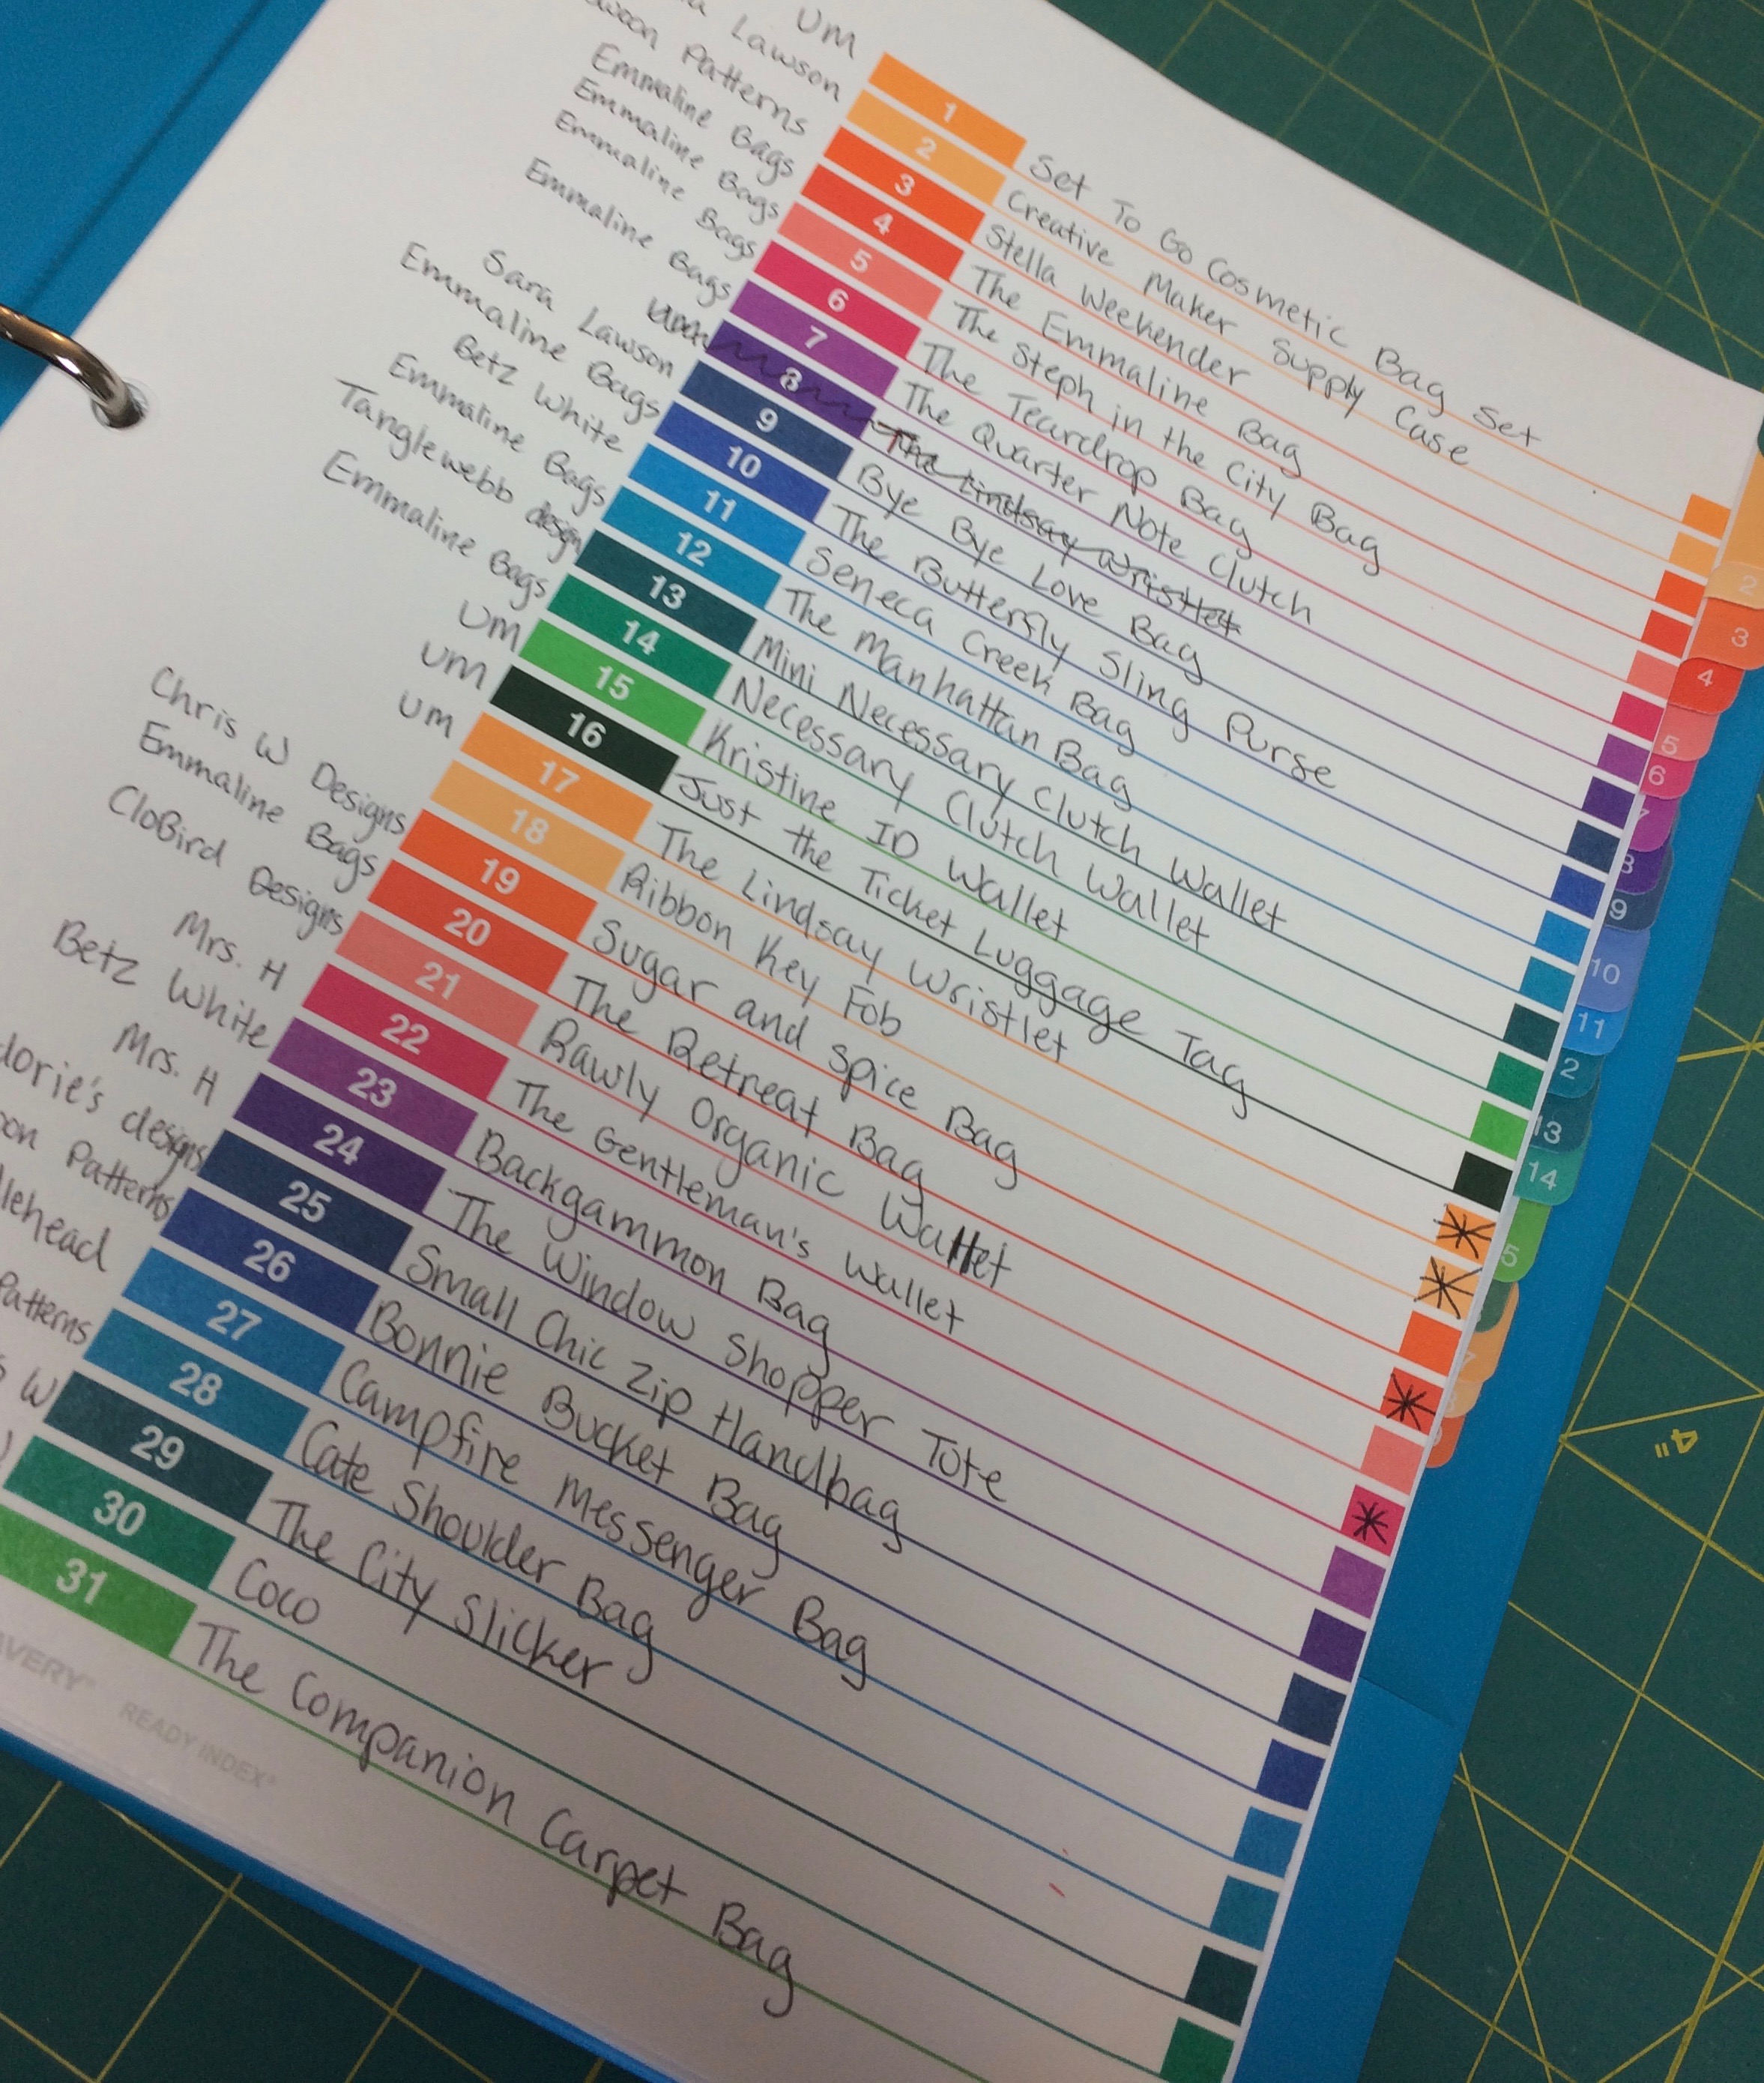 UM 1 Set To Go Cosmetic Bag Set
Lawson 2 Creative Maker Supply Case
Patterns 3 Stella Weekender
Emmaline Bags 4 The Emmaline Bag
Emmaline Bags 5 The Steph in the City Bag
Emmaline Bags 6 The Teardrop Bag
Emmaline Bags 7 The Quarter Note Clutch
8 The Lindsay Wristlet
Sara Lawson 9 Bye Bye Love Bag
Emmaline Bags 10 The Butterfly Sling Purse
Betz White 11 Seneca Creek Bag
Emmaline Bags 12 The Manhattan Bag
Tanglewebb design 13 Mini Necessary Clutch Wallet
Emmaline Bags 14 Necessary Clutch Wallet
UM 15 Kristine ID Wallet
UM 16 Just the Ticket Luggage Tag
UM 17 The Lindsay Wristlet
18 Ribbon Key Fob
Chris W Designs 19 Sugar and Spice Bag
Emmaline Bags 20 The Retreat Bag
CloBird Designs 21 Rawly Organic Wallet
Mrs. H 22 The Gentleman's Wallet
Betz White 23 Backgammon Bag
Mrs. H 24 The Window Shopper Tote
designs 25 Small Chic Zip Handbag
Patterns 26 Bonnie Bucket Bag
27 Campfire Messenger Bag
Patterns 28 Cate Shoulder Bag
W 29 The City Slicker
30 Coco
31 The Companion Carpet Bag
AVERY® READY INDEX®
2
3
4
5
6
7
8
9
10
11
2
13
14
5
4"